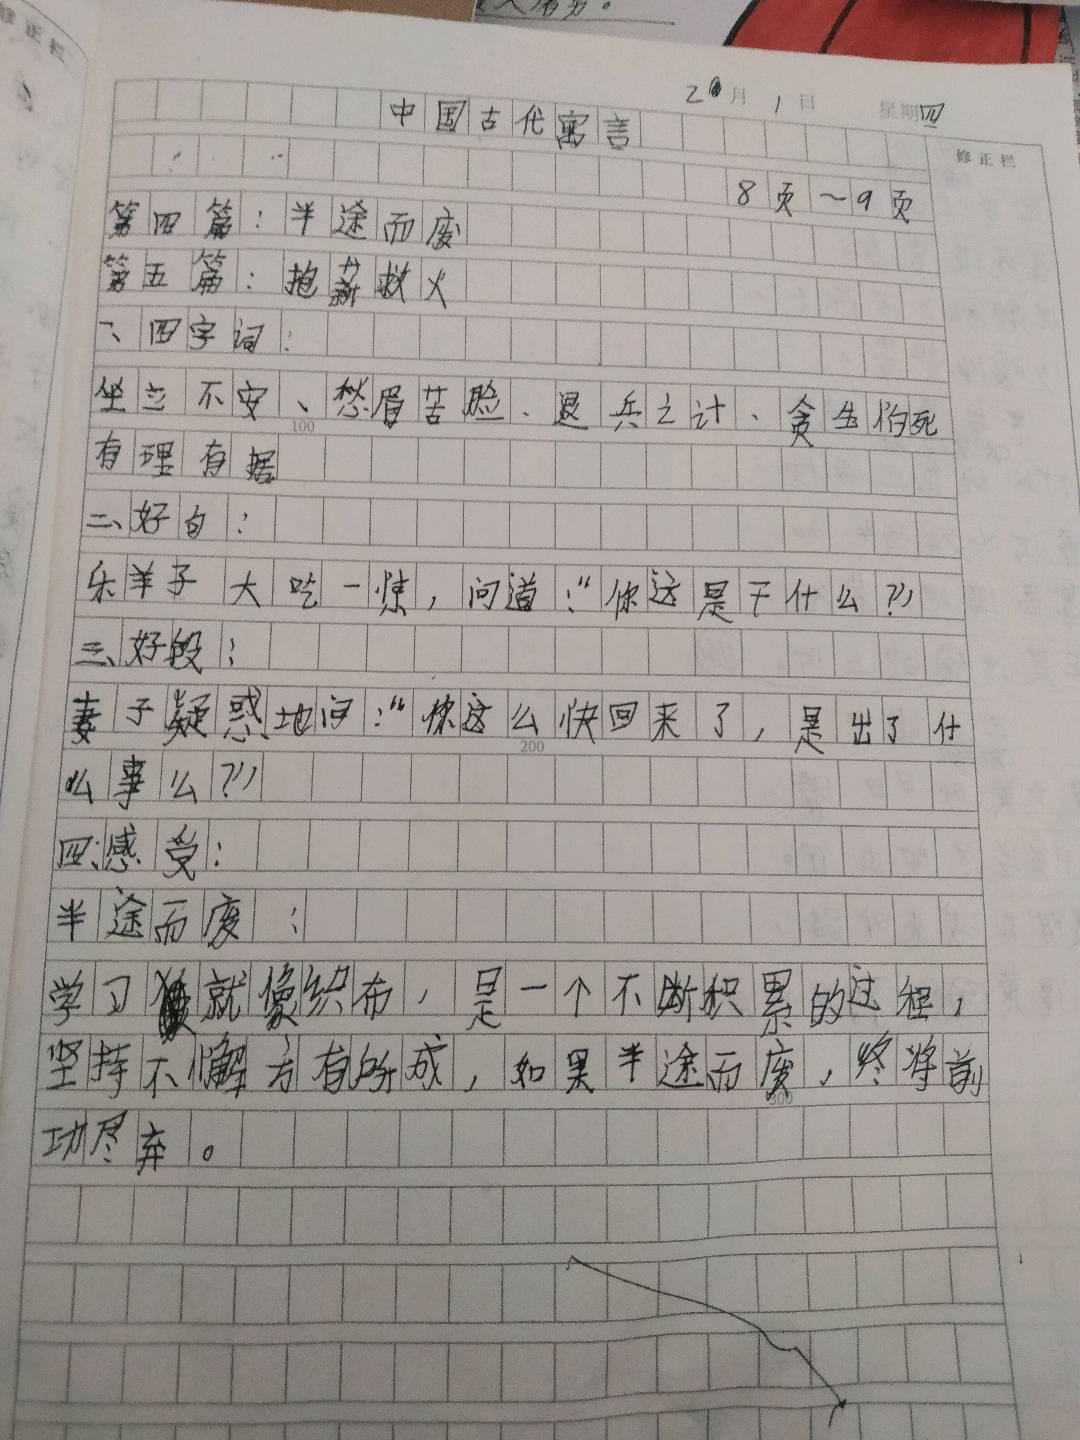 修正栏
2月1日 星期四
中国古代寓言
修正栏
8页~9页
第四篇:半途而废
第五篇:抱薪救火
一、四字词:
坐立不安、愁眉苦脸、退兵之计、贪生怕死
100
有理有据
二、好句:
乐羊子大吃一惊,问道:“你这是干什么?”
三、好段:
妻子疑惑地问:“你这么快回来了,是出了什
200
么事么?”
四、感受:
半途而废:
学习就像织布,是一个不断积累的过程,
坚持不懈方有所成,如果半途而废,终将前
300
功尽弃。